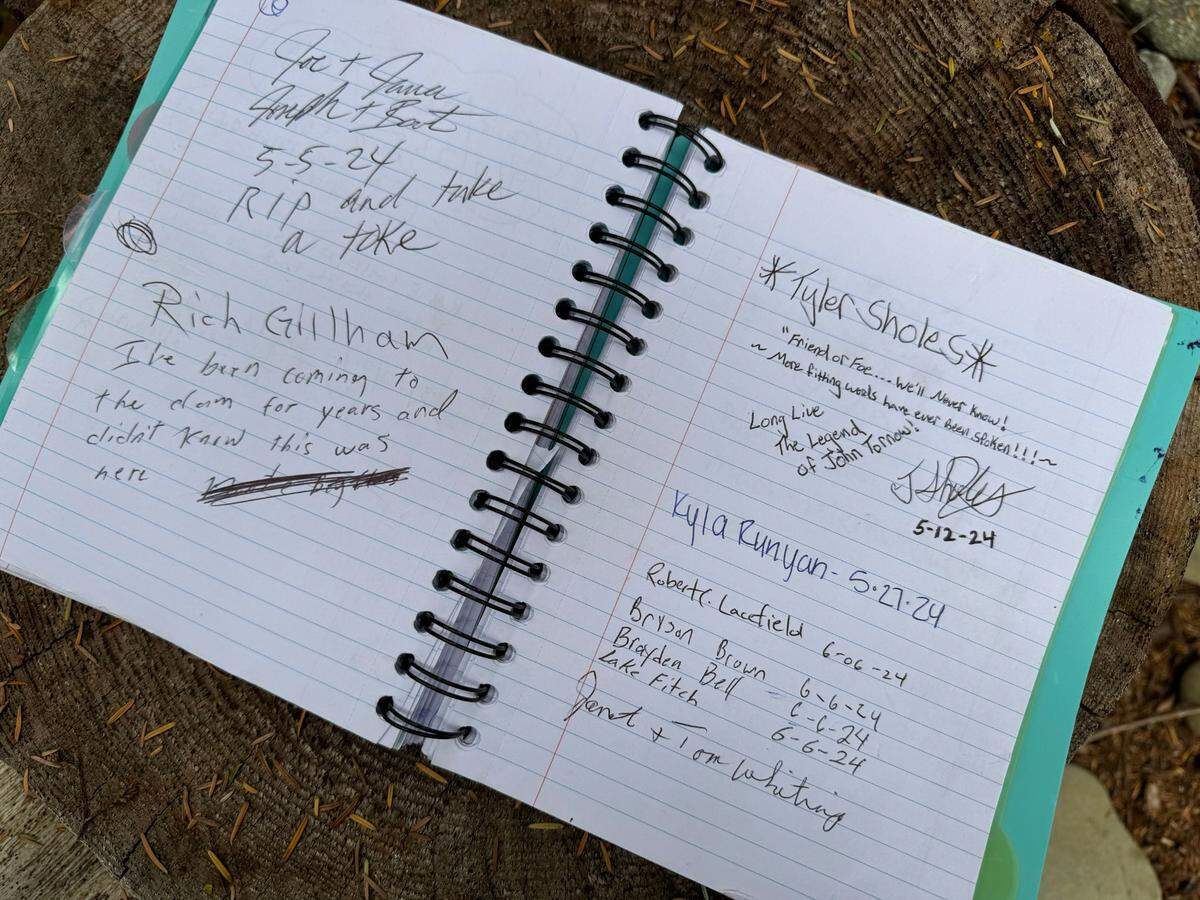 Joe + Jana
Joseph +
5-5-24
Rip and take
a toke
Rich Gillham
I've been coming to
the dam for years and
didn't know this was
here
*Tyler Sholes*
"Friend or Foe... We'll Never Know!
~ More fitting words have ever been spoken!!!~
Long Live
The Legend
of John Tornow!"
5-12-24
Kyla Runyan - 5.27.24
Robert C. Lacefield 6-06-24
Bryson Brown 6-6-24
Brayden Bell 6-6-24
Zake Fitch 6-6-24
Janet + Tom Whiting